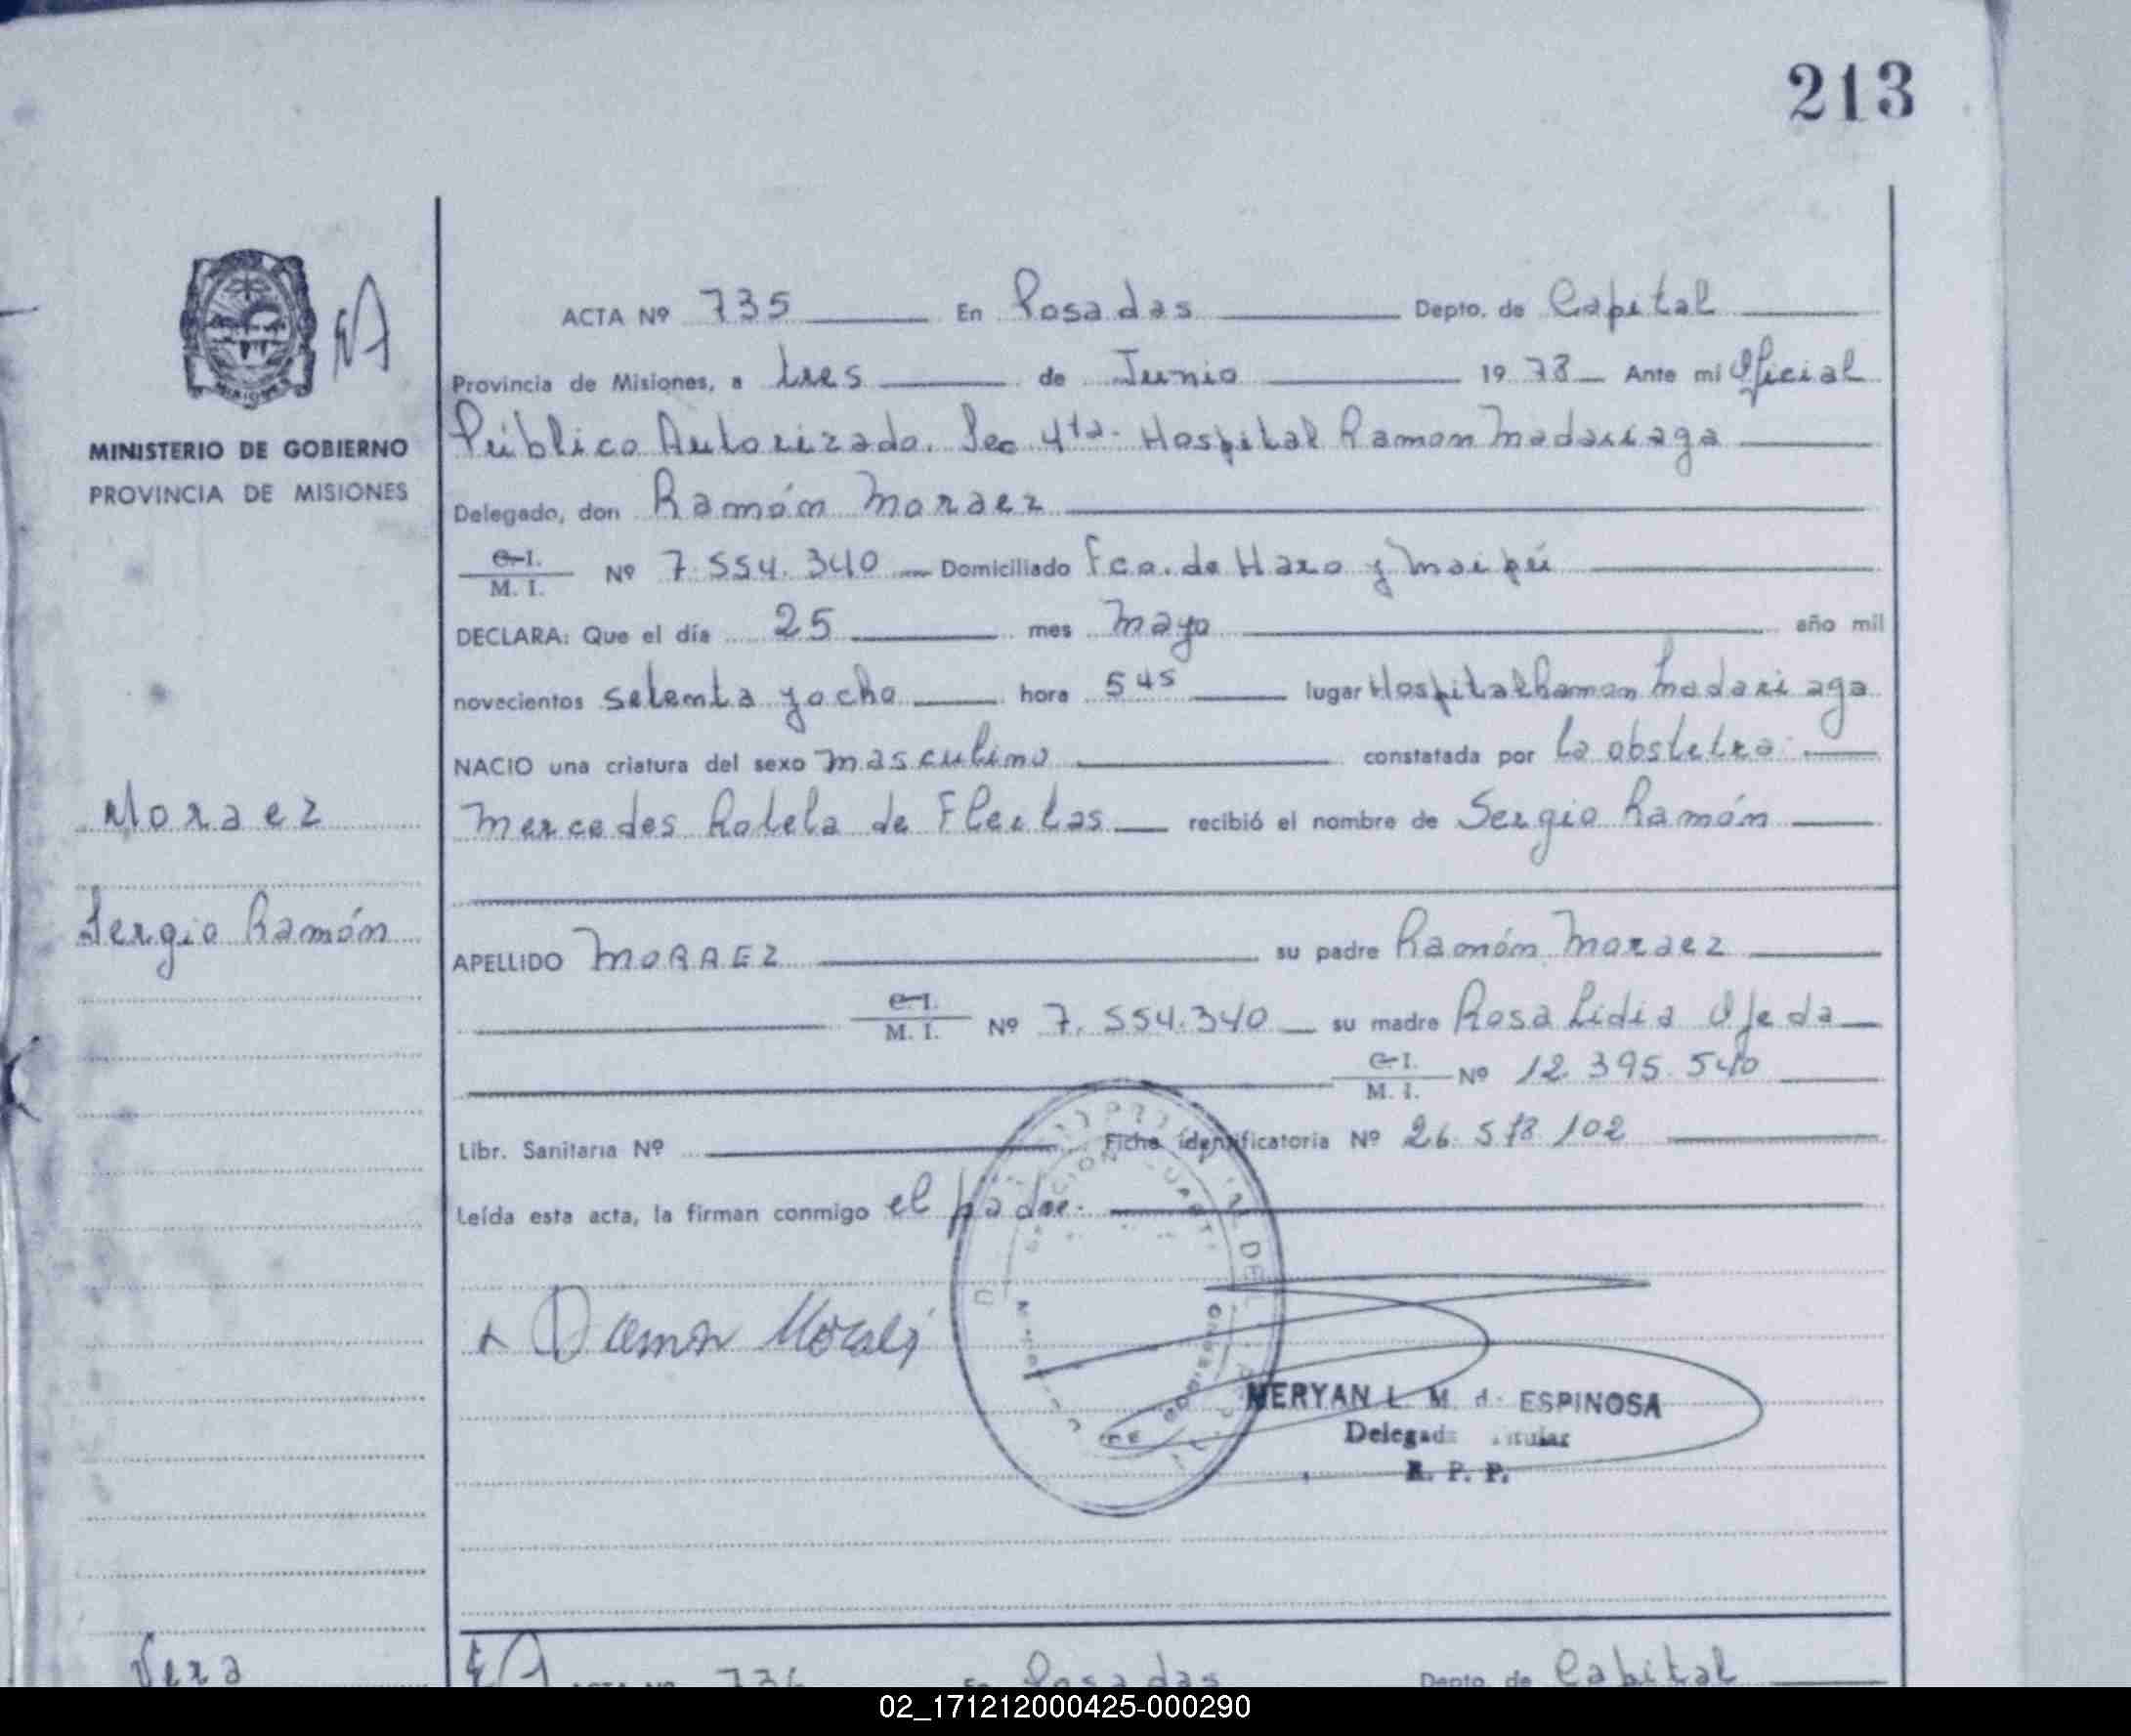 213
ACTA Nº 735 En Posadas Depto. de Capital
Provincia de Misiones, a tres de Junio 1978 Ante mi Oficial
Público Autorizado. Sec 4ta. Hospital Ramon Madariaga
MINISTERIO DE GOBIERNO
PROVINCIA DE MISIONES
Delegado, don Ramón Moraez
C.I. M. I. Nº 7.554.340 Domiciliado Fco. de Haro y Maipú
DECLARA: Que el día 25 mes Mayo año mil
novecientos setenta y ocho hora 5 45 lugar Hospital Ramon Madariaga
NACIO una criatura del sexo masculino constatada por la obstetra
Moraez
Mercedes Rotela de Fleitas recibió el nombre de Sergio Ramón
Sergio Ramón
APELLIDO MORAEZ su padre Ramón Moraez
C.I. M. I. Nº 7.554.340 su madre Rosa Lidia Ojeda
C.I. M. I. Nº 12.395.540
Libr. Sanitaria Nº Ficha identificatoria Nº 26.578.102
Leída esta acta, la firman conmigo el padre.
Ramon
MERYAN L. M. de ESPINOSA
Delegada Titular
R. P. P.
Vera
ACTA Nº 736 En Posadas Depto. de Capital
02_171212000425-000290